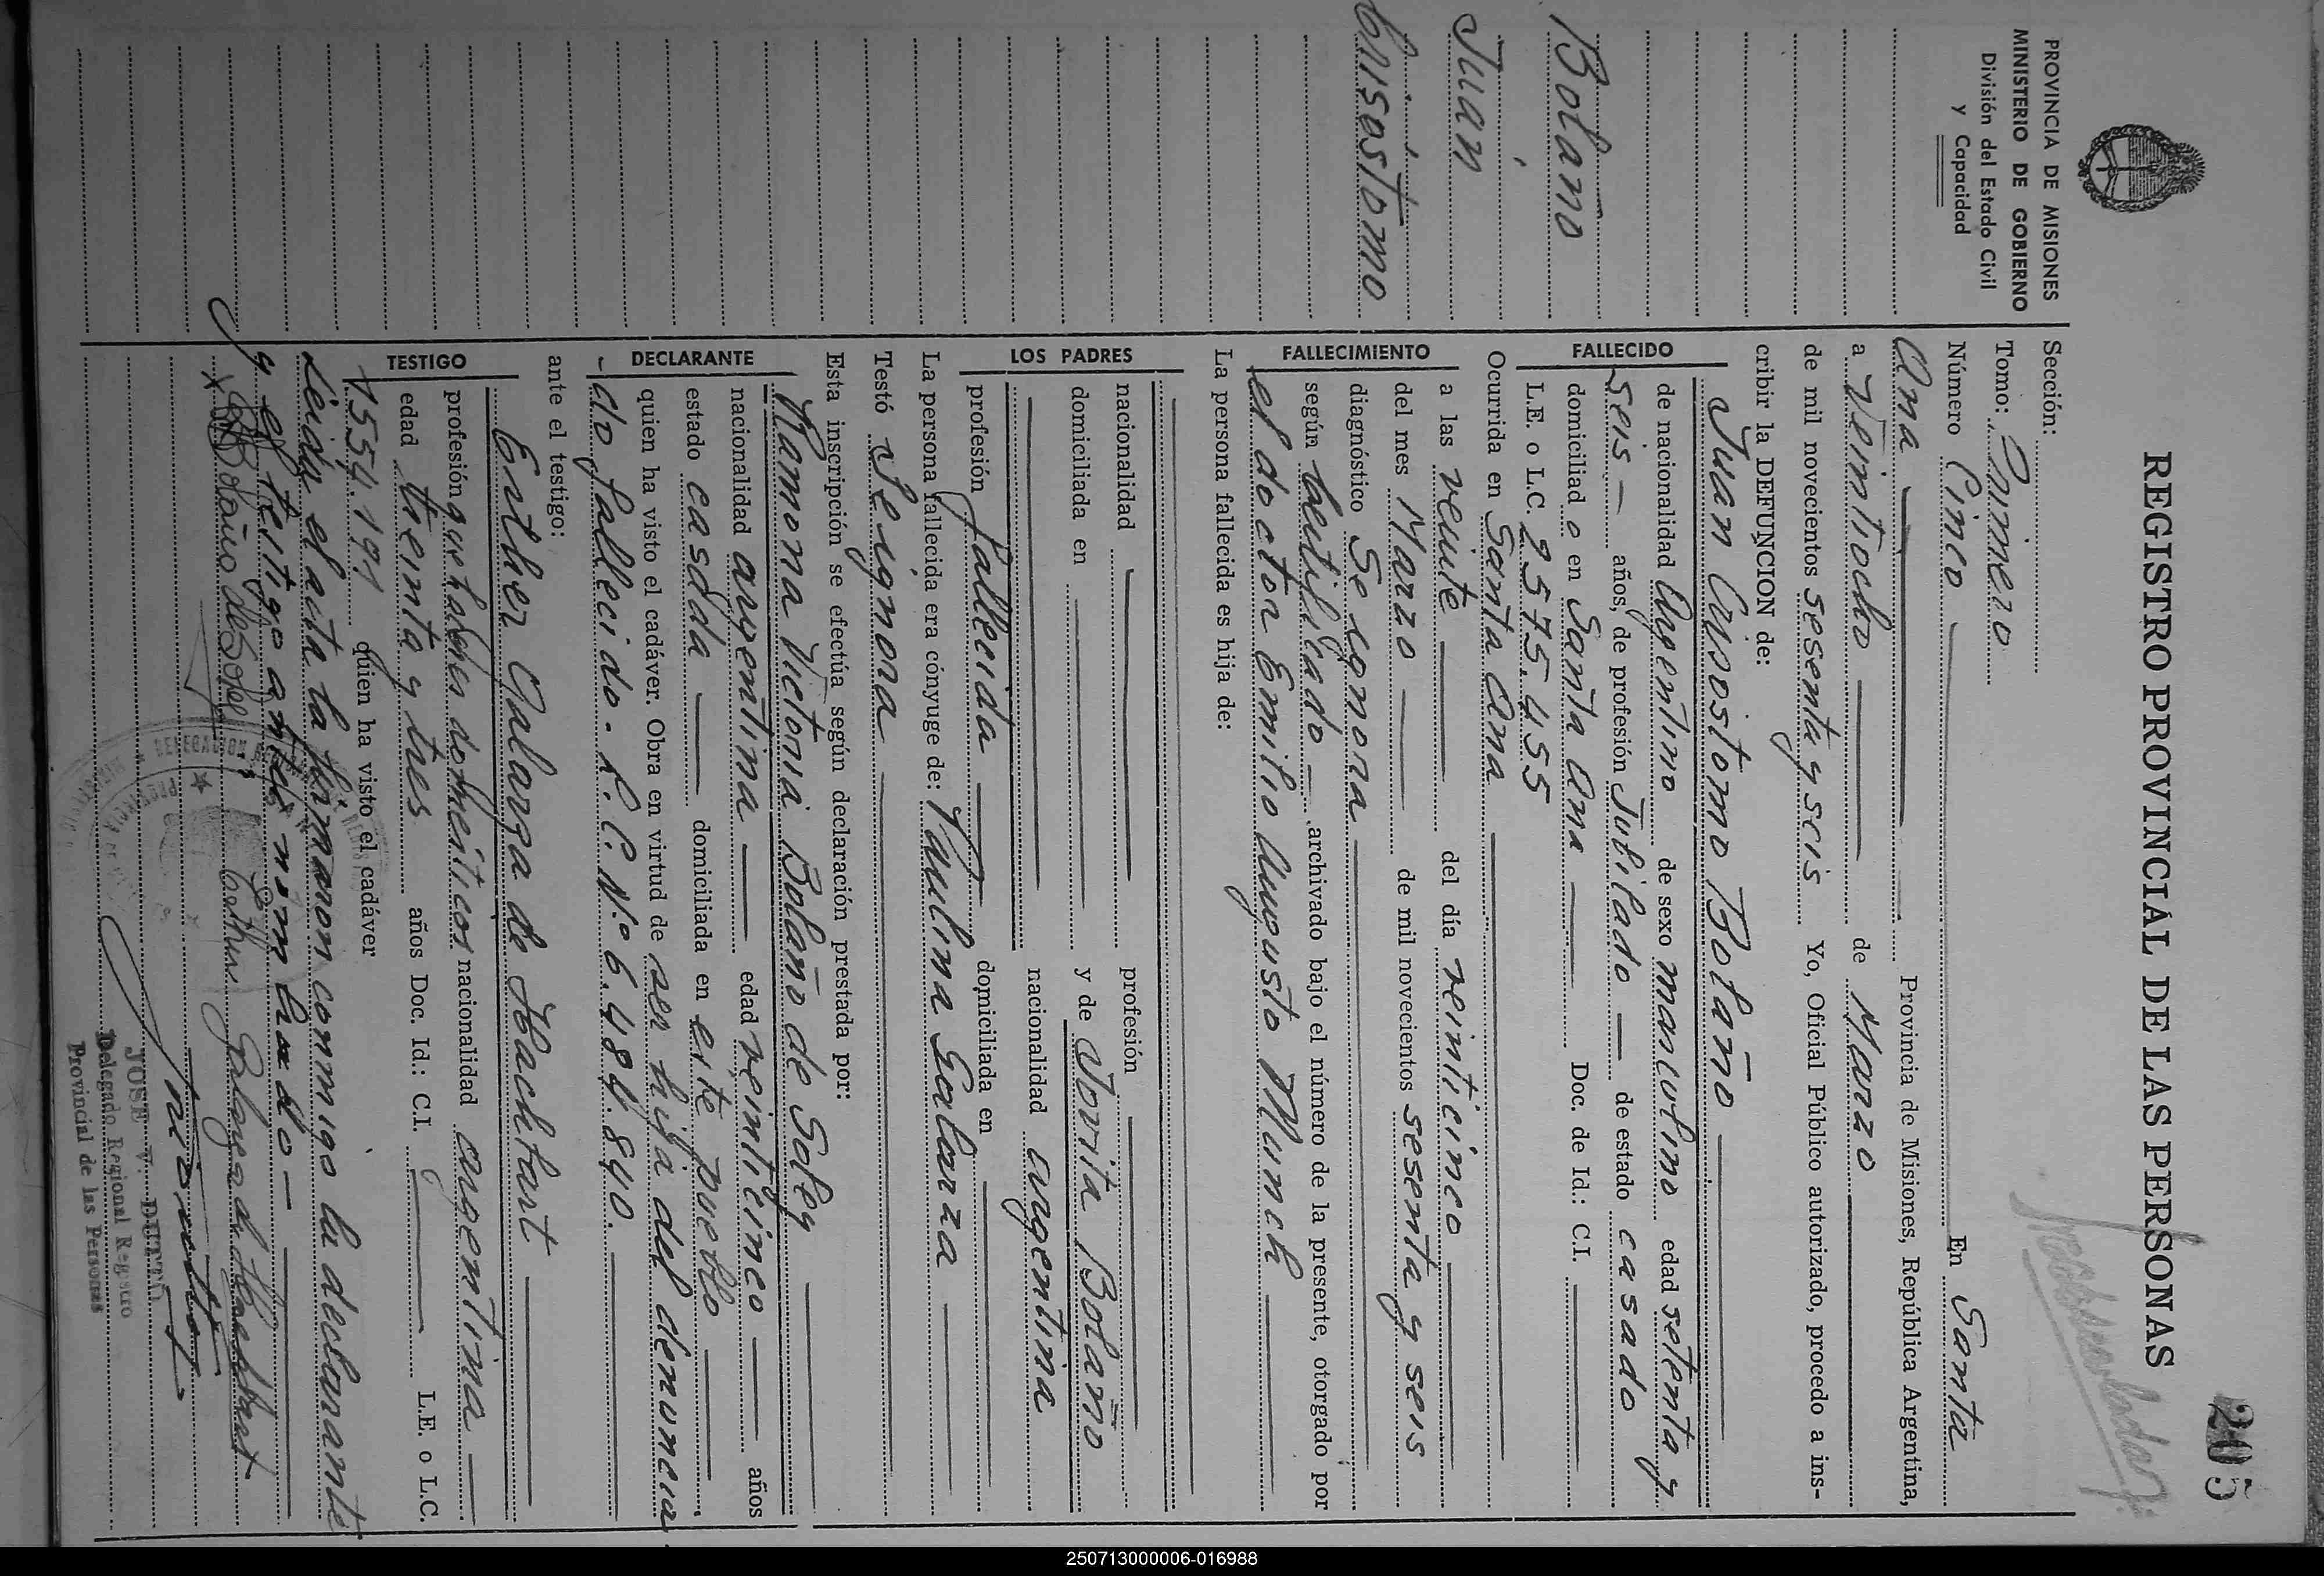 205
REGISTRO PROVINCIAL DE LAS PERSONAS
PROVINCIA DE MISIONES
MINISTERIO DE GOBIERNO
División del Estado Civil
y Capacidad
Bolaño
Juan
Crisóstomo
Sección:
Tomo: Primero
Número Cinco En Santa
Ana Provincia de Misiones, República Argentina,
a Veintiocho de Marzo
de mil novecientos sesenta y seis Yo, Oficial Público autorizado, procedo a ins-
cribir la DEFUNCION de:
FALLECIDO
Juan Crisostomo Bolaño
de nacionalidad Argentino de sexo masculino edad setenta y
seis años, de profesión Jubilado de estado casado
domiciliad o en Santa Ana Doc. de Id.: C.I.
L.E. o L.C. 2575.455
FALLECIMIENTO
Ocurrida en Santa Ana
a las veinte del día veinticinco
del mes Marzo de mil novecientos sesenta y seis
diagnóstico Se ignora
según certificado archivado bajo el número de la presente, otorgado por
el doctor Emilio Augusto Munch
La persona fallecida es hija de:
LOS PADRES
nacionalidad profesión
domiciliada en y de Jovita Bolaño
nacionalidad argentina
profesión fallecida domiciliada en
La persona fallecida era cónyuge de: Paulina Galarza
Testó Se ignora
Esta inscripción se efectúa según declaración prestada por:
DECLARANTE
Ramona Victoria Bolaño de Soley
nacionalidad argentina edad veinticinco años
estado casada domiciliada en este pueblo
quien ha visto el cadáver. Obra en virtud de ser hija del denuncia
-do fallecido.- L.C. Nº 6.484.840.
ante el testigo:
TESTIGO
Esther Galarza de Hachtart
profesión quehaceres domésticos nacionalidad argentina
edad treinta y tres años Doc. Id.: C.I. L.E. o L.C.
1554.191 quien ha visto el cadáver
Leída el acta la firmaron conmigo la declarante
y el testigo antes nombrado-
Bolaño de Soley
Esther Galarza de
JOSE V. DUTTO
Delegado Regional Registro
Provincial de las Personas
250713000006-016988